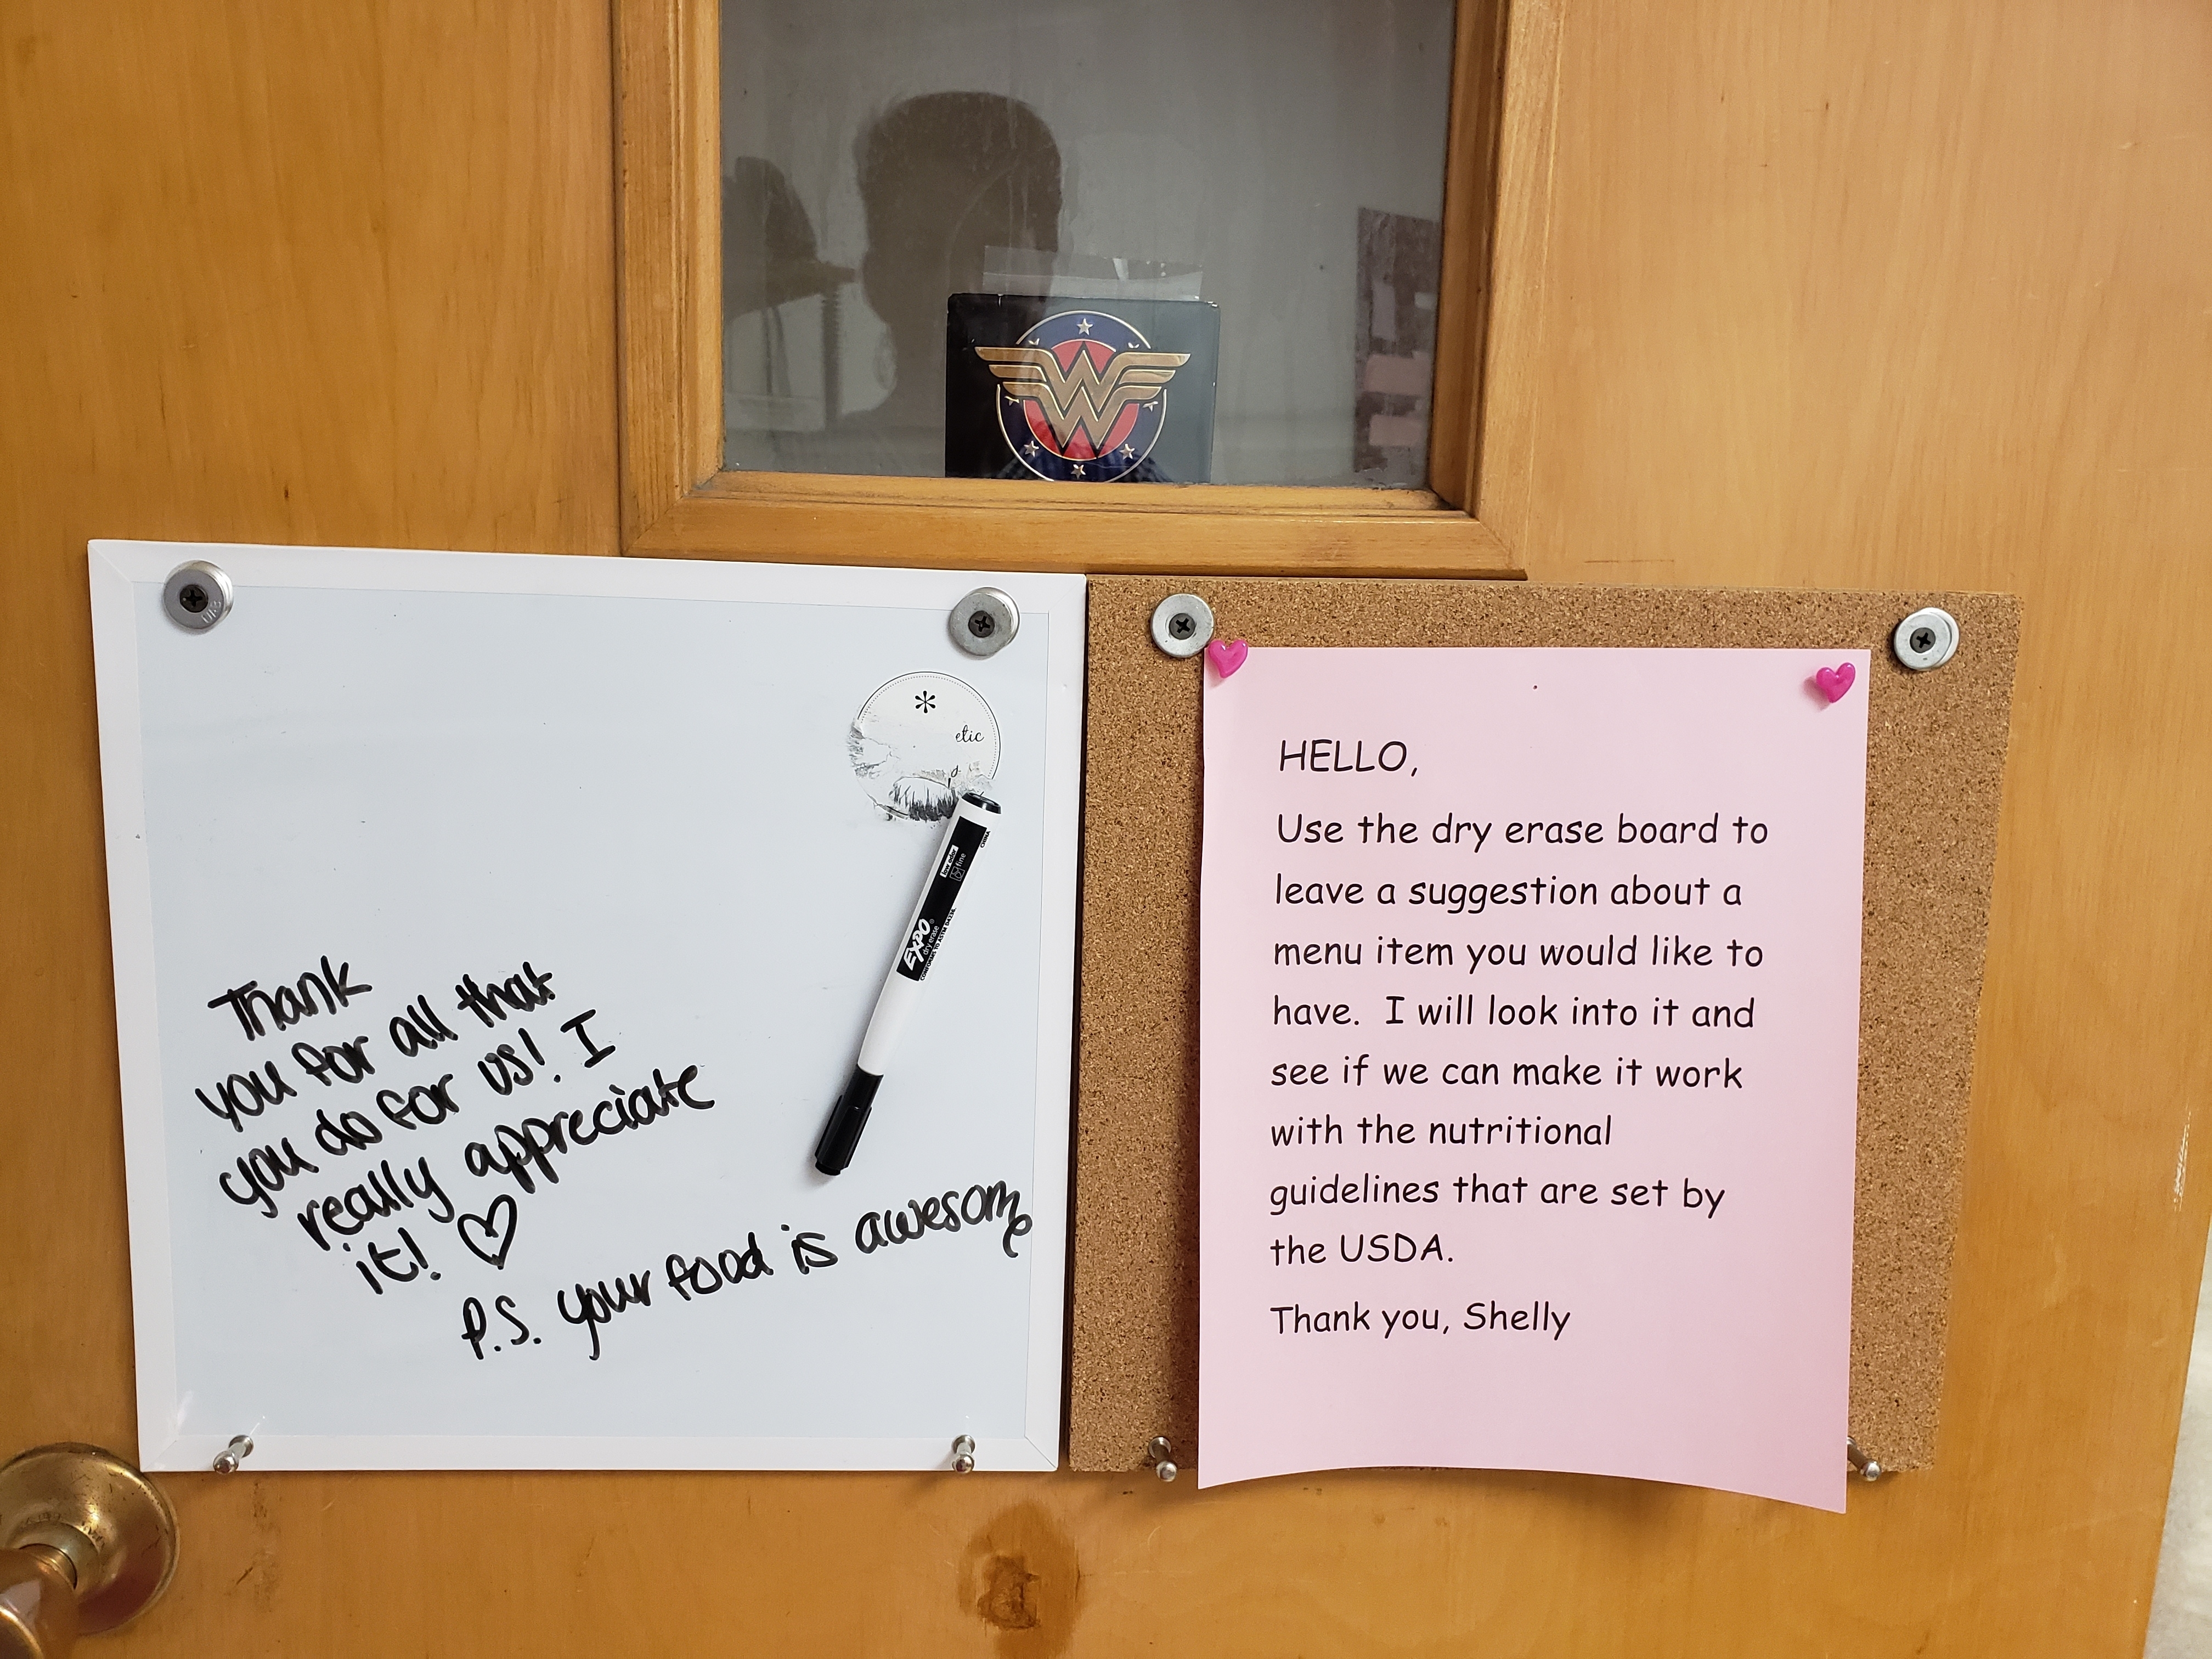 W
*
etic
y
low odor
fine
EXPO
dry erase
CONFORMS TO ASTM D-4236
CHINA
Thank
you for all that
you do for us! I
really appreciate
it! ♡
P.S. your food is awesome
HELLO,
Use the dry erase board to
leave a suggestion about a
menu item you would like to
have. I will look into it and
see if we can make it work
with the nutritional
guidelines that are set by
the USDA.
Thank you, Shelly